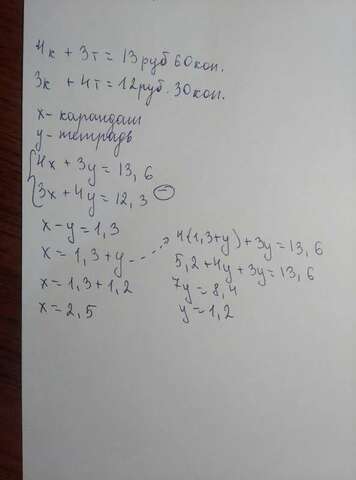 4к + 3т = 13 руб 60 коп.
3к + 4т = 12 руб. 30 коп.
x - карандаш
y - тетрадь
{4x + 3y = 13,6
{3x + 4y = 12,3 (-)
x - y = 1,3
x = 1,3 + y
x = 1,3 + 1,2
x = 2,5
4(1,3+y) + 3y = 13,6
5,2 + 4y + 3y = 13,6
7y = 8,4
y = 1,2